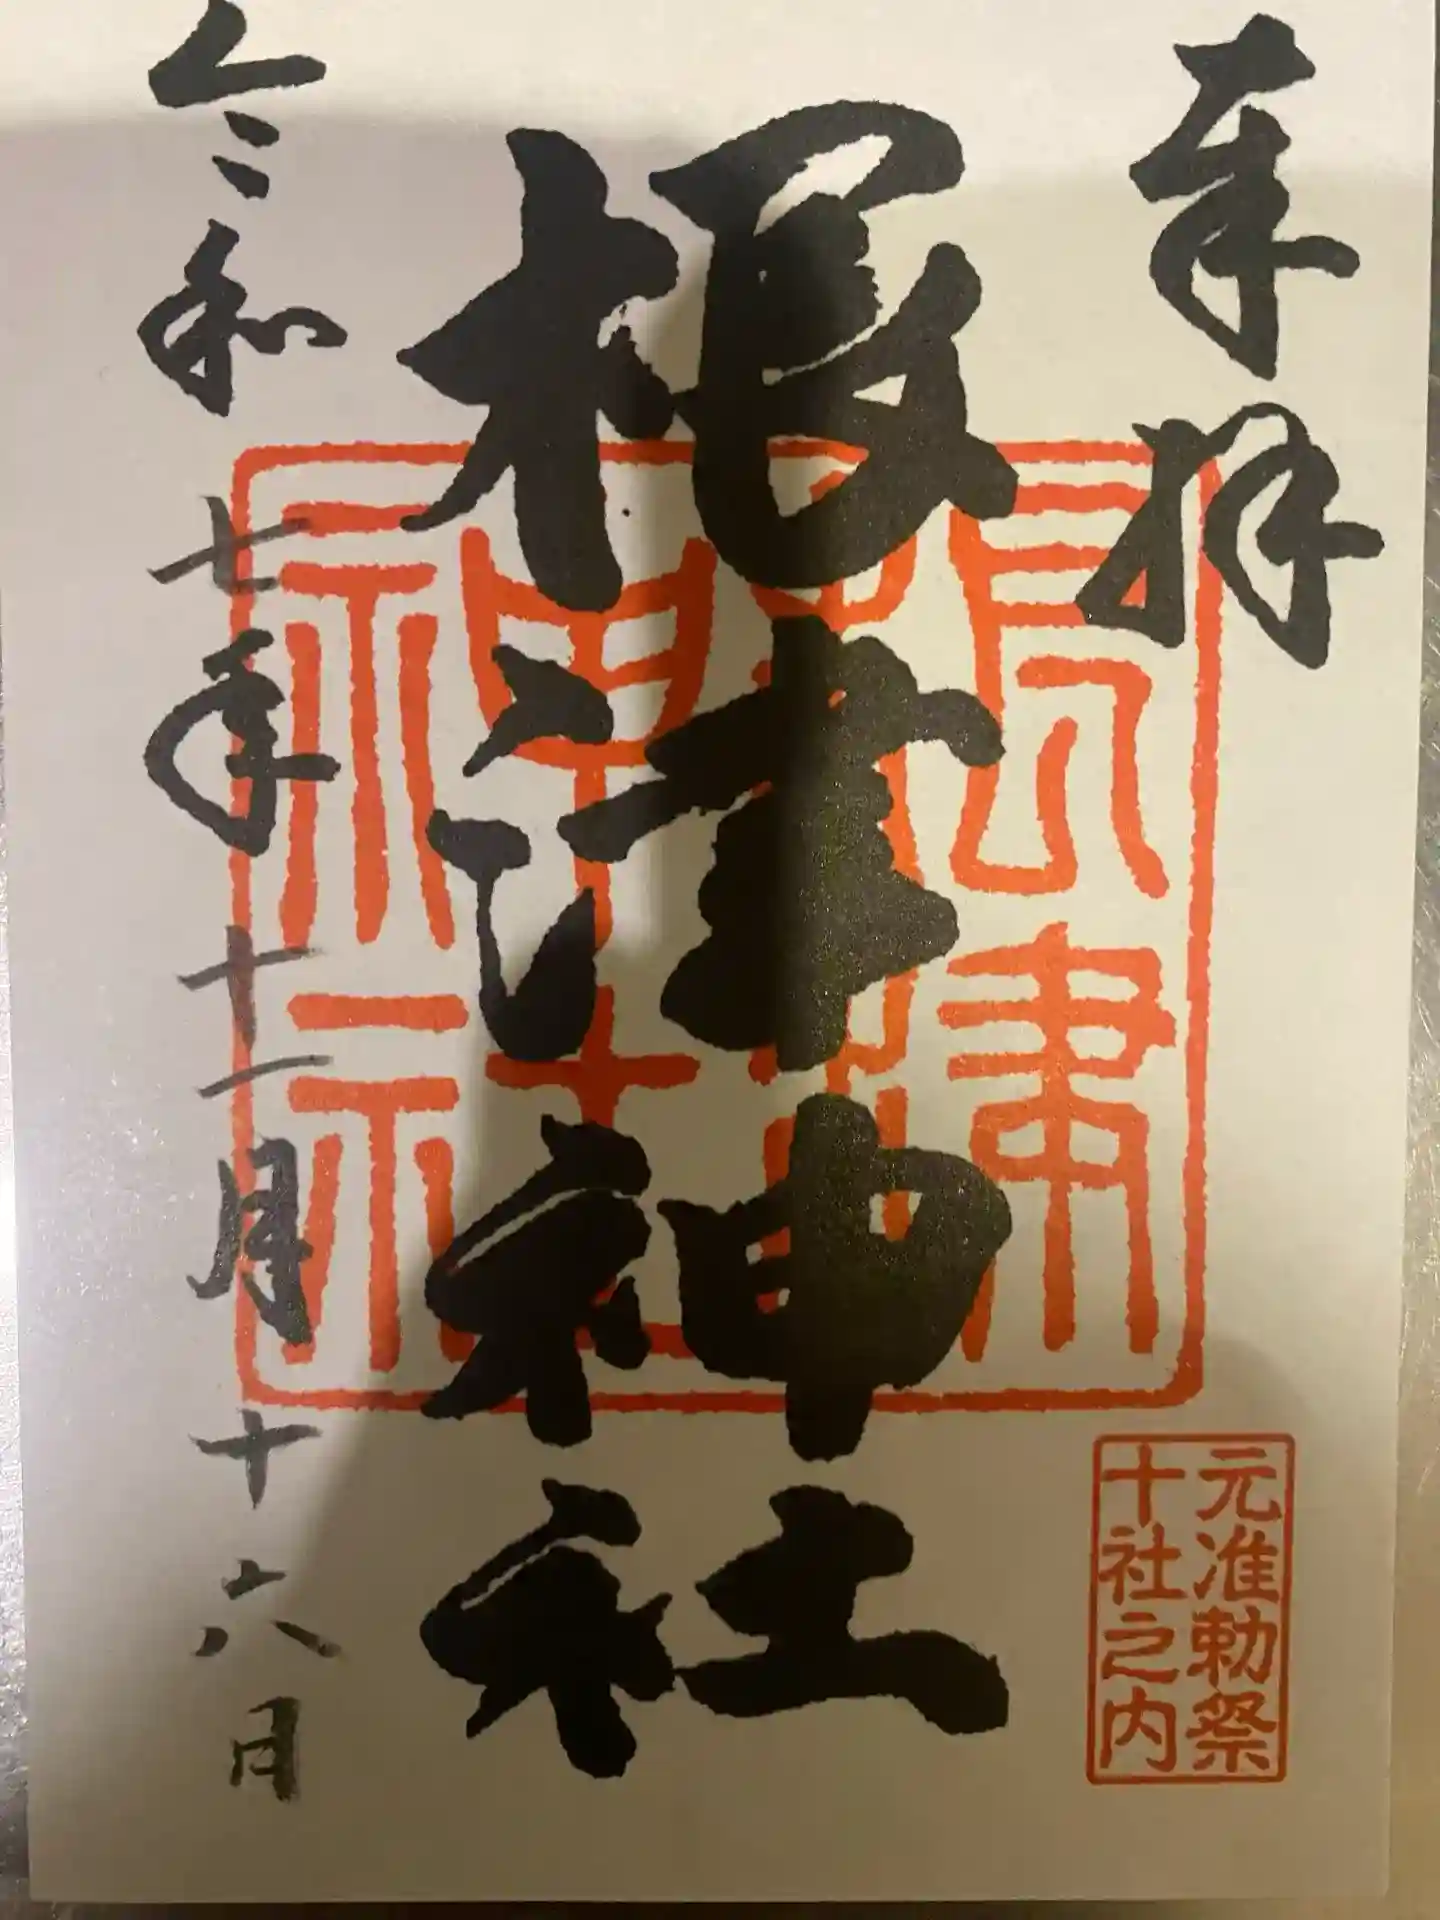 奉拝
元准勅祭
十社之内
根津神社
根津
神社
令和七年十一月十六日